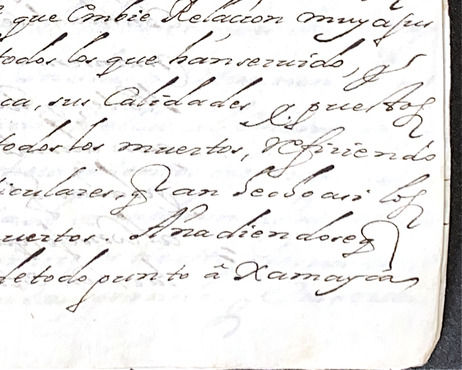 que Embie Relacion muy a su
todos los que han seruido, q
ca, sus Calidades puestos
todos los muertos, refiriendo
iculares, q an hecho asi los
uertos. Añadiendose q
de todo punto â Xamayca